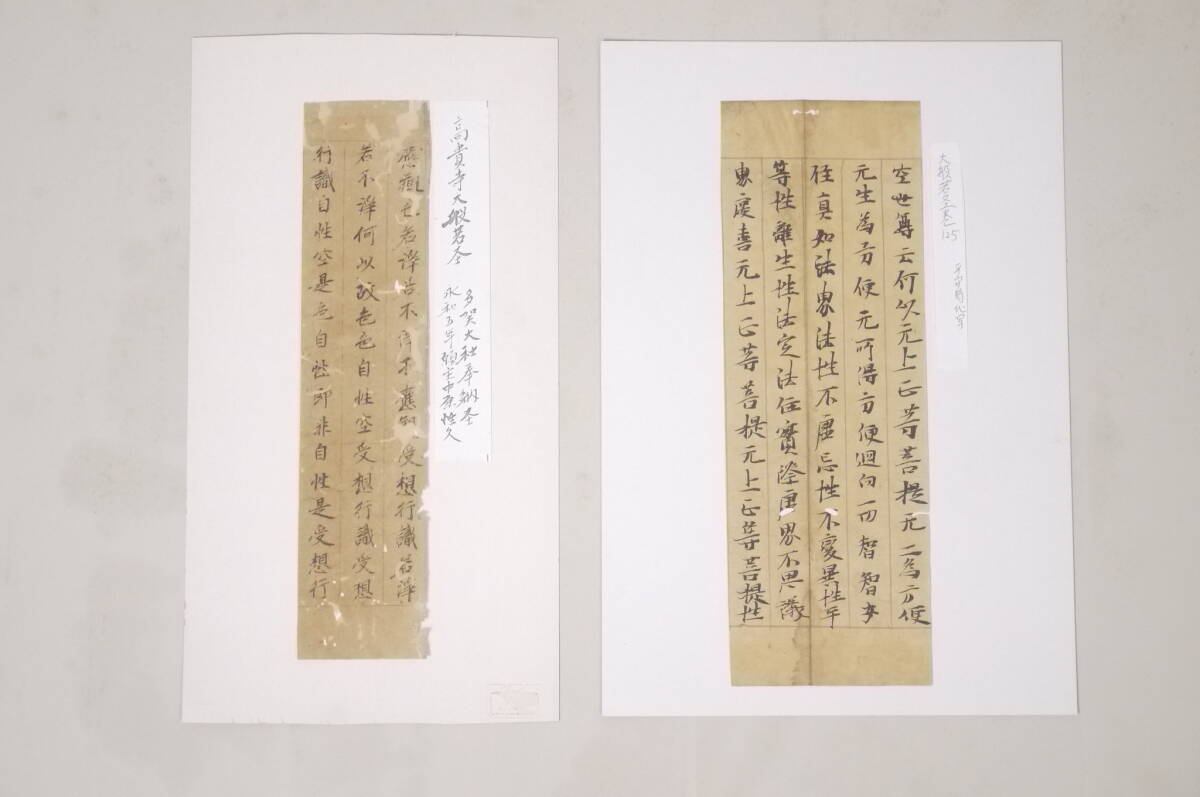 大般若圣巻125
平安時代写
空世尊云何以无上正等菩提无二為方便
无生為方便无所得方便迴向一切智智安
住真如法界法性不虛妄性不變異性平
等性離生性法定法住實際虛界不思議
界慶喜无上正等菩提无上正等菩提性
高貴寺大般若圣
多賀大社奉納圣
永和五年願主中原性久
應觀色若淨若不淨不應觀受想行識若淨
若不淨何以故色色自性空受想行識受想
行識自性空是色自性即非自性是受想行